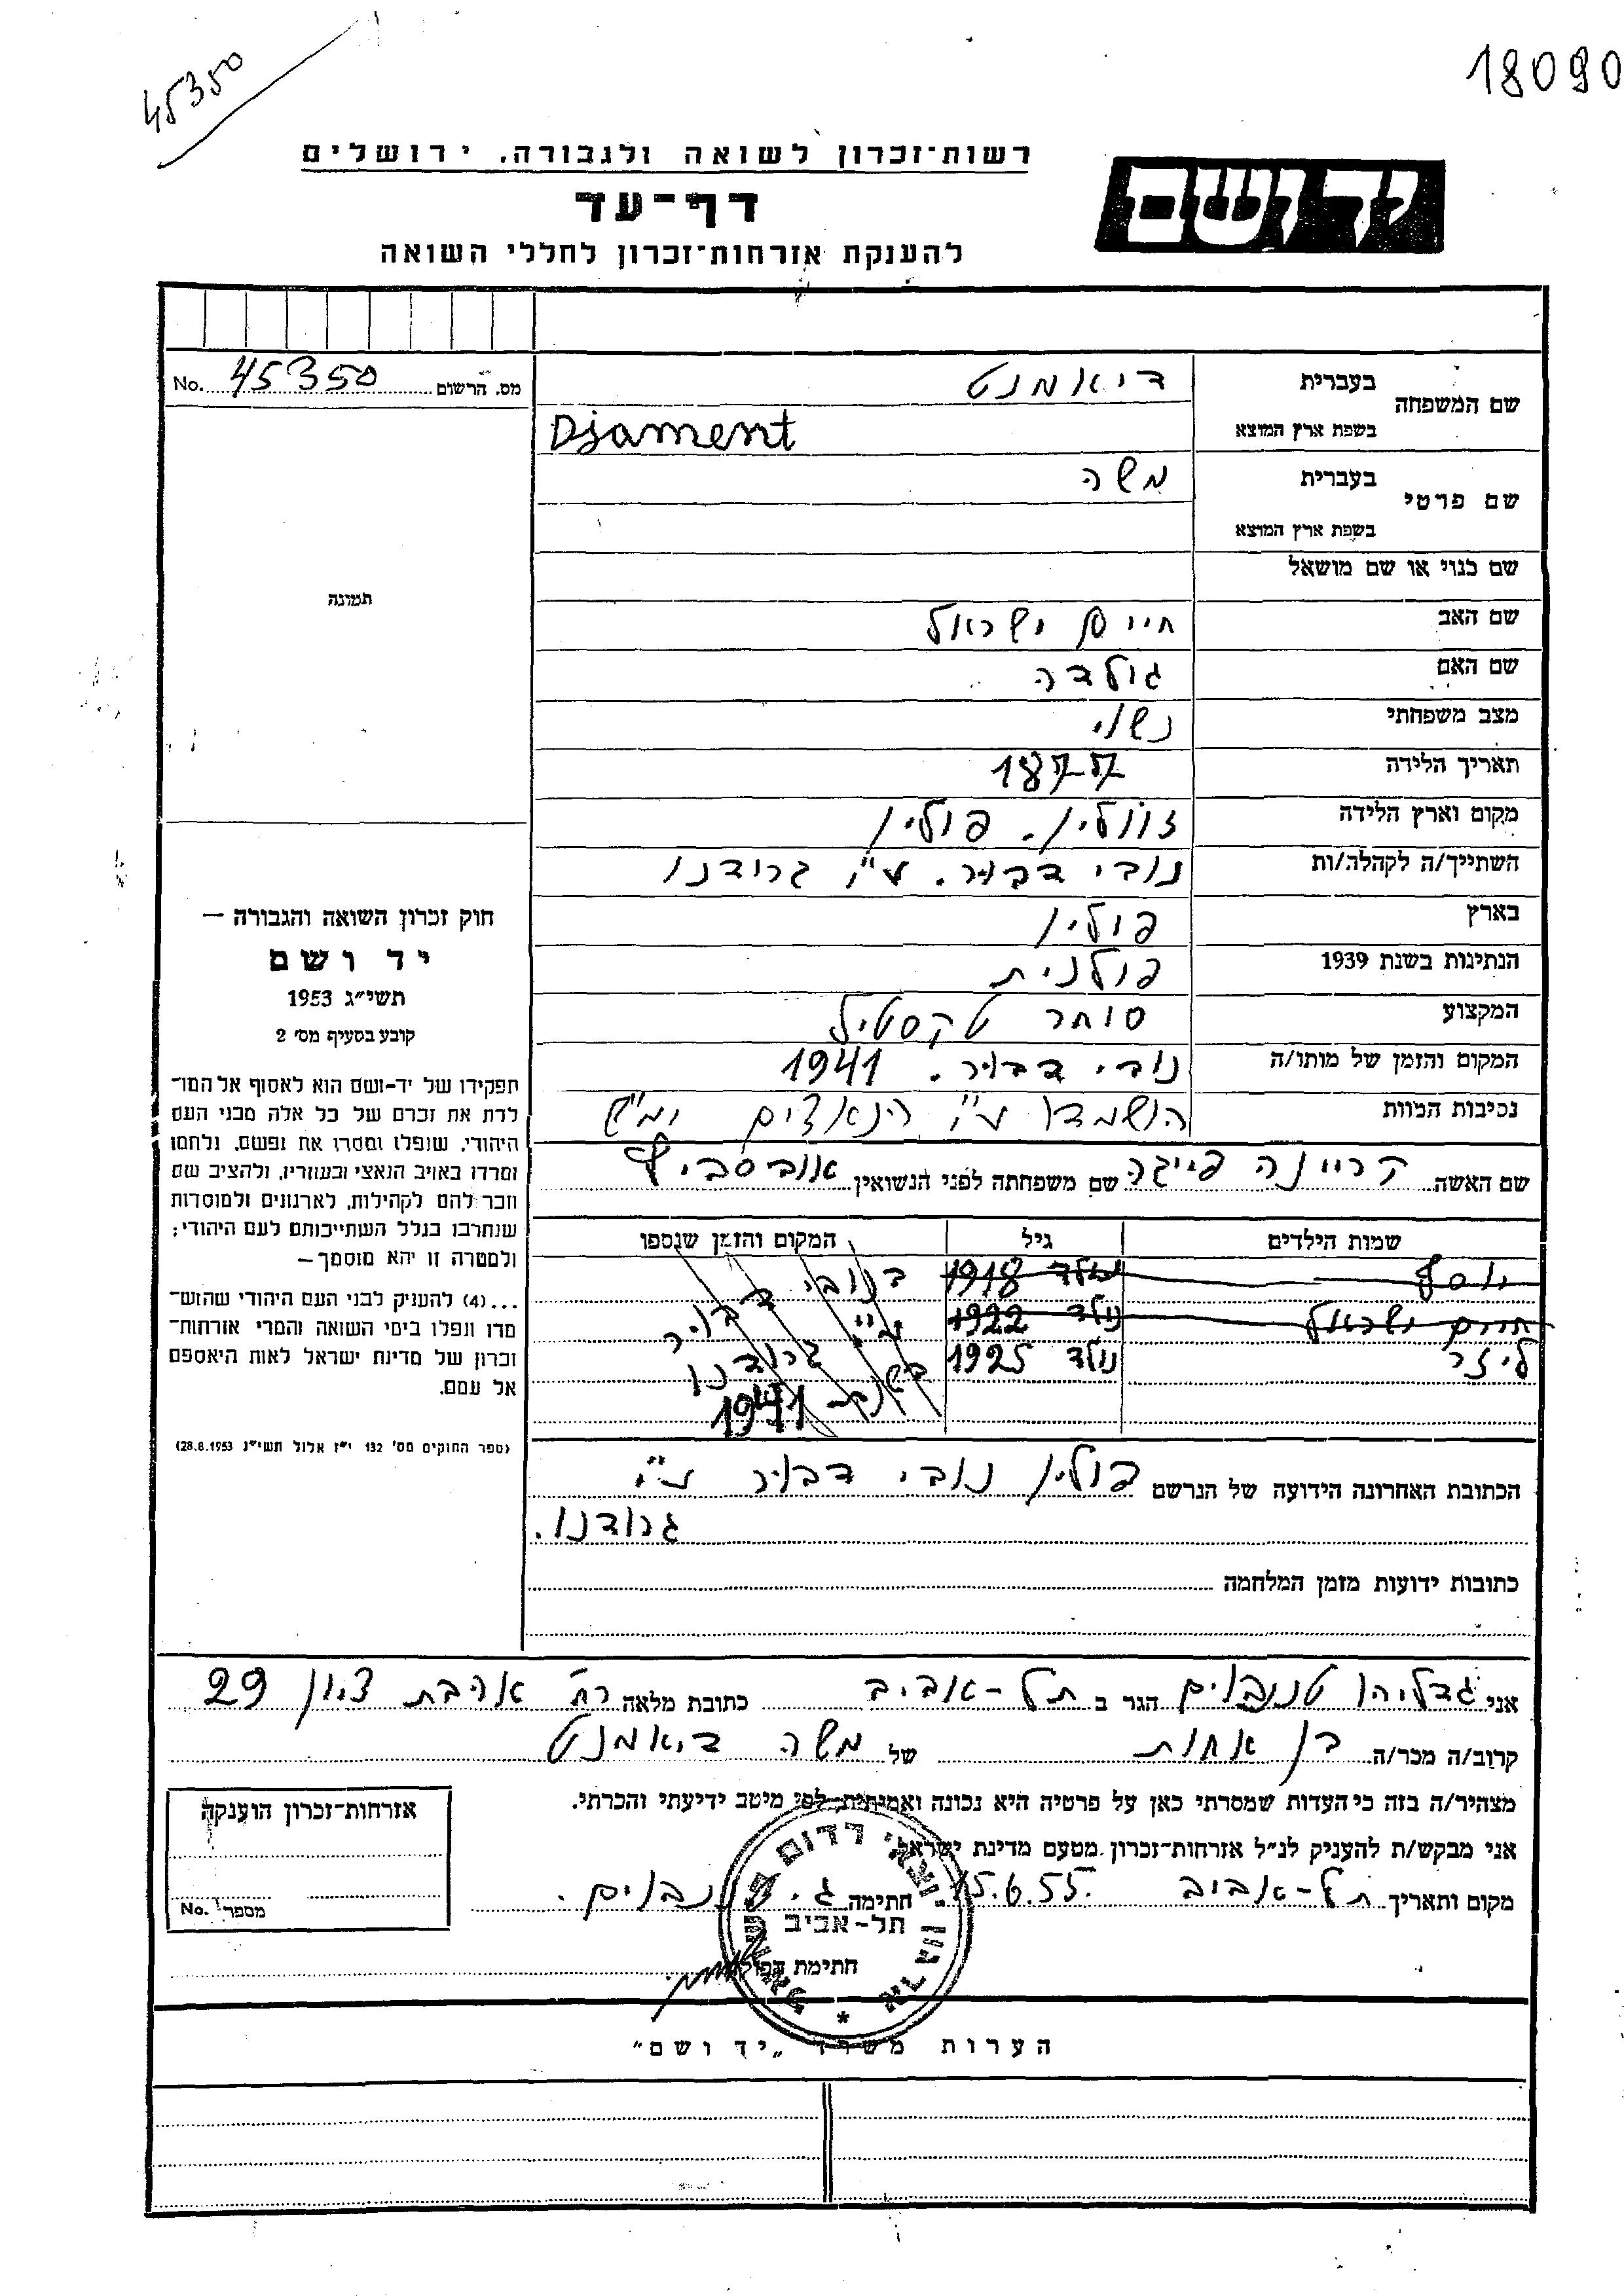 45350
18090
רשות־זכרון לשואה ולגבורה, ירושלים
יד ושם
דף־עד
להענקת אזרחות־זכרון לחללי השואה
מס. הרשום 45350 No.
שם המשפחה
בעברית דיאמנט
בשפת ארץ המוצא Djament
שם פרטי
בעברית משה
בשפת ארץ המוצא
שם כנוי או שם מושאל
שם האב חיים ישראל
שם האם גולדה
מצב משפחתי נשוי
תאריך הלידה 1877
מקום וארץ הלידה זוולין. פולין
השתייך/ה לקהלה/ות נובי דבור. ע"י גרודנו
בארץ פולין
הנתינות בשנת 1939 פולנית
המקצוע סוחר טקסטיל
המקום והזמן של מותו/ה נובי דבור. 1941
נסיבות המוות הושמדו ע"י הנאצים ימ"ש
שם האשה קריינה פייגה שם משפחתה לפני הנשואין
שמות הילדים גיל המקום והזמן שנספו
יוסף נולד 1918 בנובי דבור
חיים ישראל נולד 1922 ע"י גרודנו
ליזר נולד 1925 בשנת
1941
הכתובת האחרונה הידועה של הנרשם פולין נובי דבור ע"י
גרודנו.
כתובות ידועות מזמן המלחמה
תמונה
חוק זכרון השואה והגבורה —
יד ושם
תשי"ג 1953
קובע בסעיף מס' 2
תפקידו של יד-ושם הוא לאסוף אל המו־
לדת את זכרם של כל אלה מבני העם
היהודי, שנפלו ומסרו את נפשם, נלחמו
ומרדו באויב הנאצי ובעוזריו, ולהציב שם
וזכר להם לקהילות, לארגונים ולמוסדות
שנחרבו בגלל השתייכותם לעם היהודי;
ולמטרה זו יהא מוסמך —
...(4) להעניק לבני העם היהודי שהוש־
מדו ונפלו בימי השואה והמרי אזרחות־
זכרון של מדינת ישראל לאות היאספם
אל עמם.
(ספר החוקים מס' 132 י"ז אלול תשי"ג 28.8.1953)
אני גדליהו טננבוים הגר ב תל-אביב כתובת מלאה רח' אהבת ציון 29
קרוב/ה מכר/ה בן אחות של משה דיאמנט
מצהיר/ה בזה כי העדות שמסרתי כאן על פרטיה היא נכונה ואמיתית, לפי מיטב ידיעתי והכרתי.
אני מבקש/ת להעניק לנ"ל אזרחות־זכרון מטעם מדינת ישראל.
מקום ותאריך תל-אביב 15.6.55. חתימה ג. טננבוים.
חתימת הפוקד
ארגון יוצאי רדום בישראל
תל-אביב
אזרחות־זכרון הוענקה
מספר No.
הערות משרד „יד ושם"